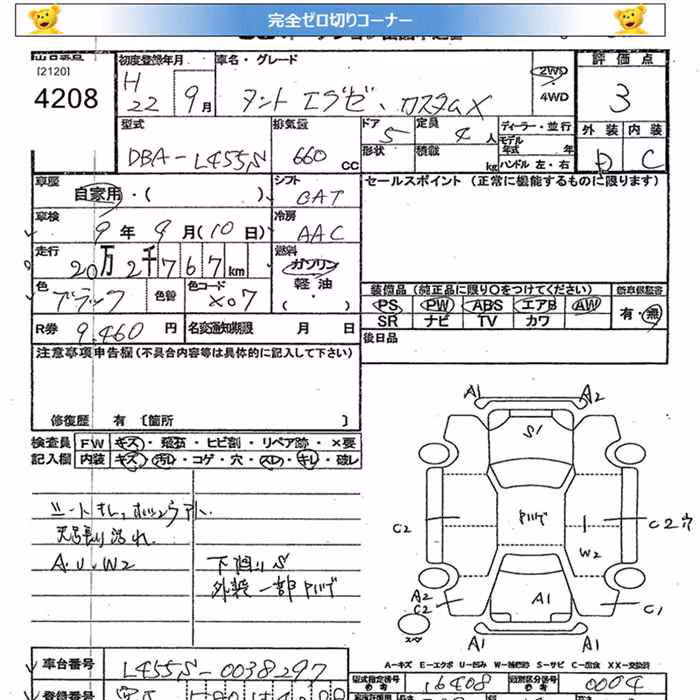 完全ゼロ切りコーナー
[2120]
4208
初度登録年月 車名・グレード 評価点
H 22 9月 タント エグゼ、カスタムX 2WD 4WD 3
型式 排気量 ドア 定員 ディーラー・並行 外装 内装
DBA-L455S 660 CC 5 4人 モデル年式 年 D C
形状 積載 kg ハンドル 左・右
車歴 自家用・( ) シフト CAT セールスポイント (正常に機能するものに限ります)
車検 9年9月(10日) 冷房 AAC
走行 20万2千767km 燃料 ガソリン 軽油 ( )
色 ブラック 色替 色コード X07
装備品 (純正品に限り○をつけてください) 新車保証書
PS PW ABS エアB AW 有・無
SR ナビ TV カワ
R券 9,460円 名変通知期限 月 日
後日品
注意事項申告欄 (不具合内容等は具体的に記入して下さい)
修復歴 有 [箇所 ]
検査員 FW キズ・飛石・ヒビ割・リペア跡・×要
記入欄 内装 キズ・汚レ・コゲ・穴・スレ・キレ・破レ
シートキレ、
天張り汚れ
A.U.W2 下廻りS
外装一部ハゲ
A1 A2
S1
C2 ハゲ C2穴
W2
A2 C2 A1 C1
スペア
A1 A1
A-キズ E-エクボ U-凹み W-補修跡 S-サビ C-腐食 XX-交換済
車台番号 L455S-0038297 型式指定番号 参考 16408 類別区分番号 参考 0004
登録番号